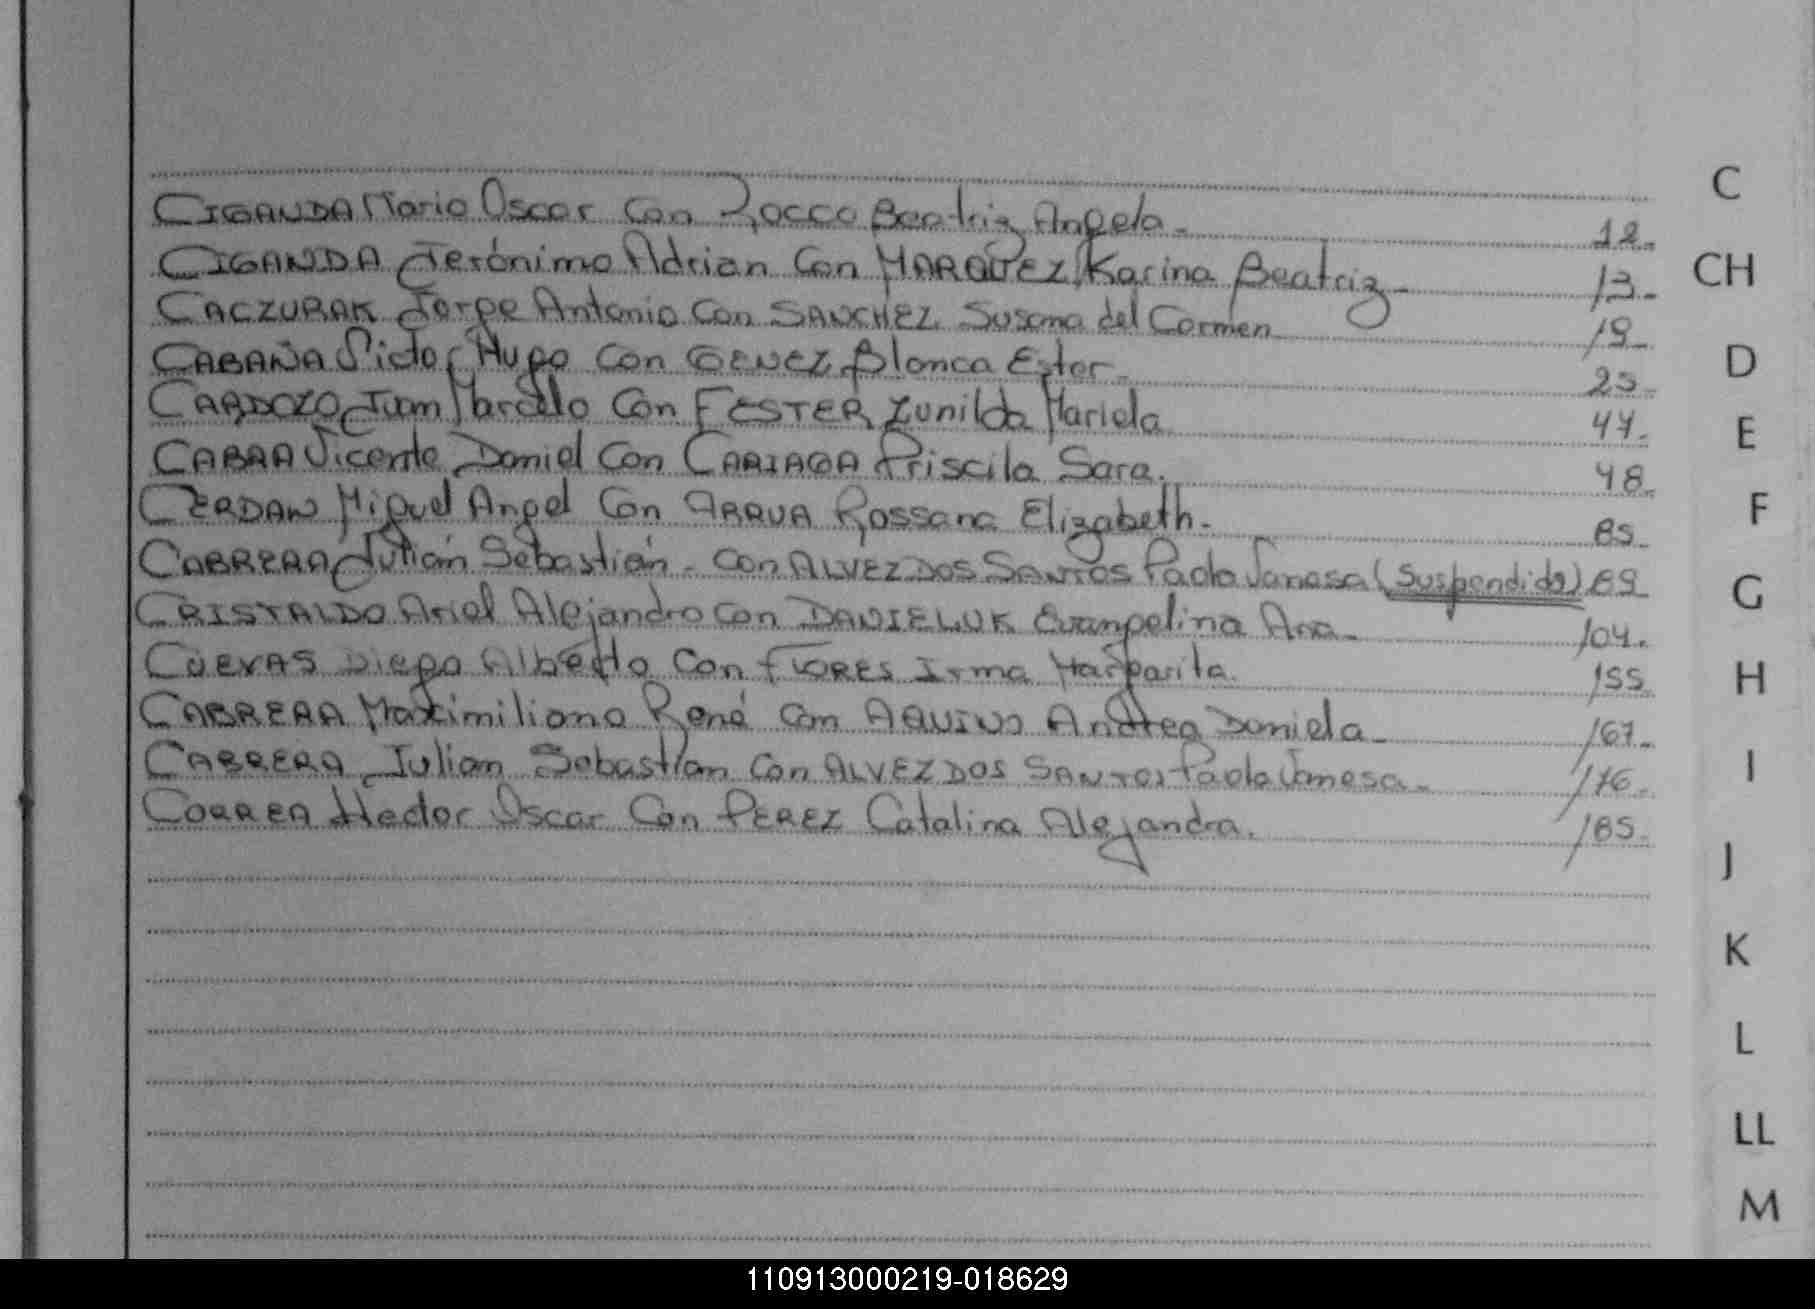 C
CIGANDA Mario Oscar con Rocco Beatriz Angela- 12-
CH
CIGANDA Jerónimo Adrian con MARQUEZ, Karina Beatriz- 13-
CACZURAK Jorge Antonio con SANCHEZ Susana del Carmen 19-
D
CABAÑA Victor Hugo con GENEZ Blanca Ester- 25-
CARDOZO Juan Marcelo con FESTER Zunilda Mariela 47-
E
CABRA Vicente Daniel con CARIAGA Priscila Sara. 48-
CERDAN Miguel Angel con ARRUA Rossana Elizabeth- 85-
F
CABRERA Julián Sebastián- con ALVEZ DOS SANTOS Paola Vanesa (Suspendido) 89
G
CRISTALDO Ariel Alejandro con DANIELUK Evangelina Ana- 104.
CUEVAS Diego Alberto con FLORES Irma Margarita. 155
H
CABRERA Maximiliano René con AQUINO Andrea Daniela- 167-
CABRERA Julian Sebastian con ALVEZ DOS SANTOS Paola Vanesa- 176-
I
CORREA Hector Oscar con PEREZ Catalina Alejandra. 185-
J
K
L
LL
M
110913000219-018629